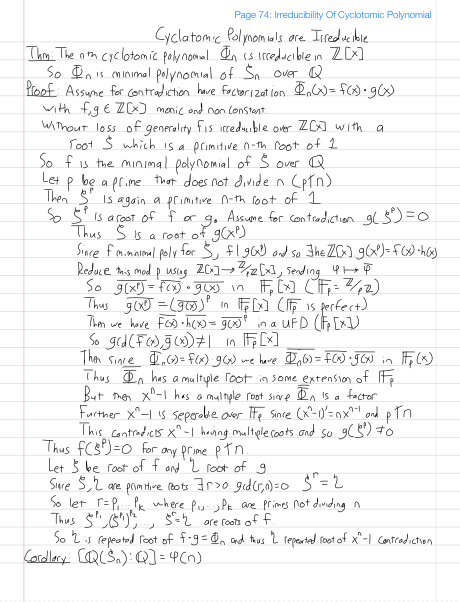 Page 74: Irreducibility Of Cyclotomic Polynomial
Cyclatomic Polynomials are Irreducible
Thm: The nth cyclotomic polynomial Φₙ is irreducible in ℤ[x]
So Φₙ is minimal polynomial of ζₙ over ℚ
Proof: Assume for contradiction have factorization Φₙ(x) = f(x)·g(x)
with f,g ∈ ℤ[x] monic and non constant.
Without loss of generality f is irreducible over ℤ[x] with a
root ζ which is a primitive n-th root of 1
So f is the minimal polynomial of ζ over ℚ
Let p be a prime that does not divide n (p∤n)
Then ζᵖ is again a primitive n-th root of 1
So ζᵖ is a root of f or g. Assume for contradiction g(ζᵖ)=0
Thus ζ is a root of g(xᵖ)
Since f minimal poly for ζ, f | g(xᵖ) and so ∃h∈ℤ[x] g(xᵖ)=f(x)·h(x)
Reduce this mod p using ℤ[x]→ℤ/pℤ[x], sending φ ↦ φ̅
So \overline{g(xᵖ)} = \overline{f(x)}·\overline{g(x)} in 𝔽ₚ[x] (𝔽ₚ = ℤ/pℤ)
Thus \overline{g(xᵖ)} = (\overline{g(x)})ᵖ in 𝔽ₚ[x] (𝔽ₚ is perfect)
Then we have \overline{f(x)}·\overline{h(x)} = \overline{g(x)}ᵖ in a UFD (𝔽ₚ[x])
So gcd(\overline{f(x)},\overline{g(x)})≠1 in 𝔽ₚ[x]
Then since Φₙ(x)=f(x)·g(x) we have \overline{Φₙ(x)} = \overline{f(x)}·\overline{g(x)} in 𝔽ₚ(x)
Thus \overline{Φₙ} has a multiple root in some extension of 𝔽ₚ
But then xⁿ-1 has a multiple root since \overline{Φₙ} is a factor
Further xⁿ-1 is seperable over 𝔽ₚ since (xⁿ-1)'=nxⁿ⁻¹ and p∤n
This contradicts xⁿ-1 having multiple roots and so g(ζᵖ)≠0
Thus f(ζᵖ)=0 for any prime p∤n.
Let ζ be root of f and η root of g
Since ζ,η are primitive roots ∃r>0 gcd(r,n)=0 ζʳ=η
So let r=p₁…pₖ where p₁,…,pₖ are primes not dividing n
Thus ζᵖ¹,(ζᵖ¹)ᵖ²,…,ζʳ=η are roots of f.
So η is repeated root of f·g=Φₙ and thus η repeated root of xⁿ-1 contradiction
Corollary: [ℚ(ζₙ):ℚ]=φ(n)